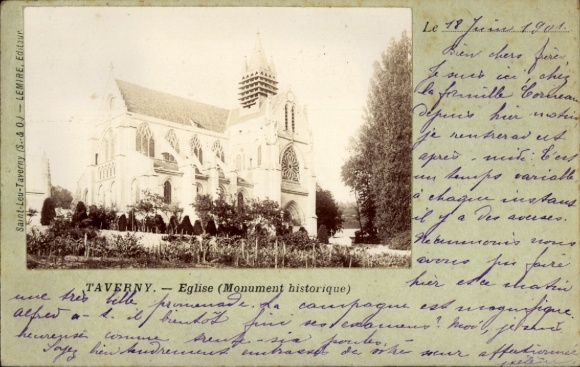 Saint-Leu-Taverny (S.-& O.) — LEMIRE, Editeur
Le 18 Juin 1901.
Bien chers frère,
Je suis ici, chez
la famille
depuis hier matin
je rentrerai cet
après-midi. C'est
un temps variable
à chaque instant
il y a des averses.
Néanmoins nous
avons pu faire
hier et ce matin
TAVERNY. — Eglise (Monument historique)
une très belle promenade. La campagne est magnifique
Alfred a-t-il bientôt fini ses examens? Moi, je suis
heureuse comme trente-six poules.
Soyez bien tendrement embrassé de votre sœur affectionnée